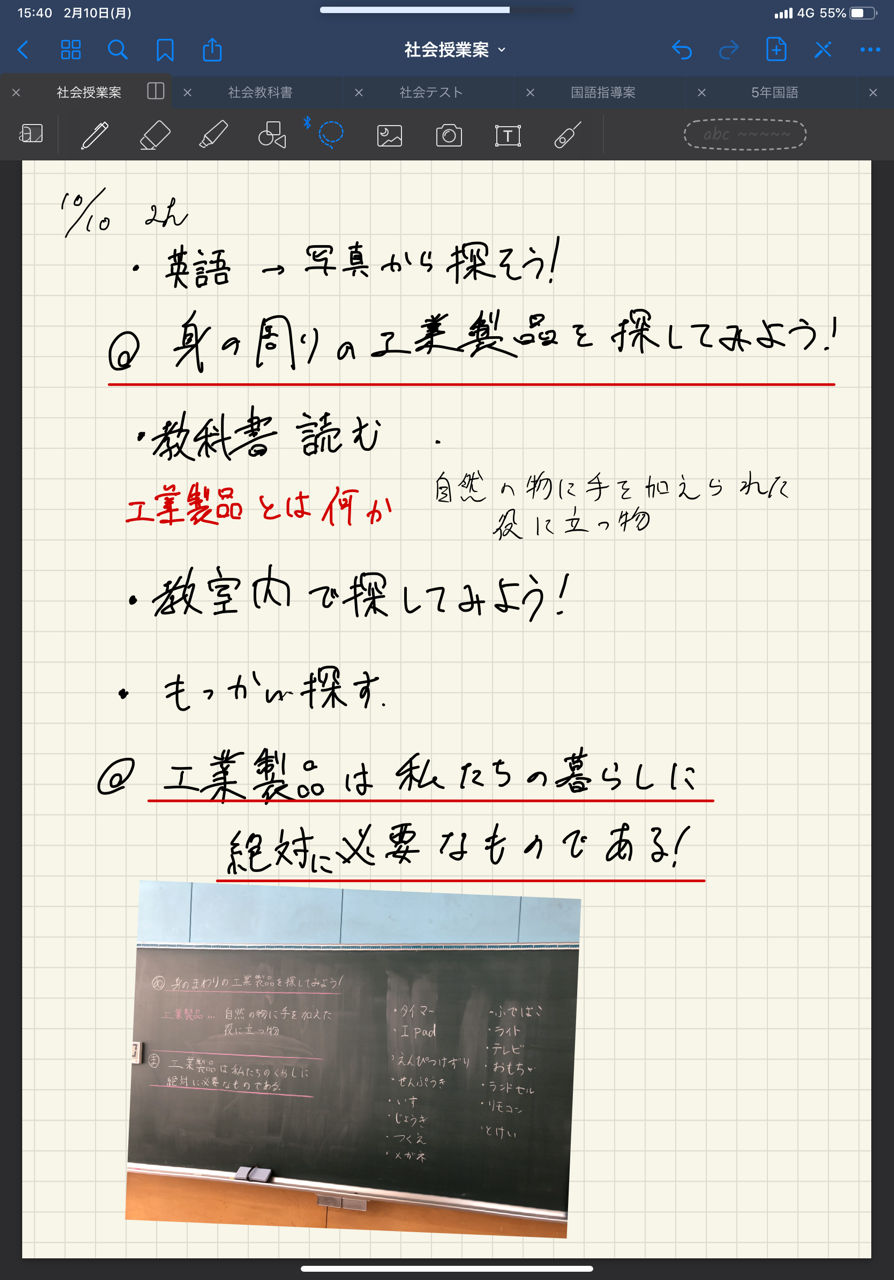 15:40 2月10日(月)
4G 55%
社会授業案
社会授業案
社会教科書
社会テスト
国語指導案
5年国語
abc
10/10
・英語 → 写真から探そう!
@ 身の周りの工業製品を探してみよう!
・教科書 読む
工業製品とは何か
自然の物に手を加えられた
役に立つ物
・教室内で探してみよう!
・もっかい探す.
@ 工業製品は私たちの暮らしに
絶対に必要なものである!
身のまわりの工業製品を探してみよう!
工業製品… 自然の物に手を加えた
役に立つ物
ま 工業製品は私たちのくらしに
絶対に必要なものである
・タイマー
・Ipad
・えんぴつけずり
・せんぷうき
・いす
・じょうぎ
・つくえ
・メガネ
・ふでばこ
・ライト
・テレビ
・おもちゃ
・ランドセル
・リモコン
・とけい